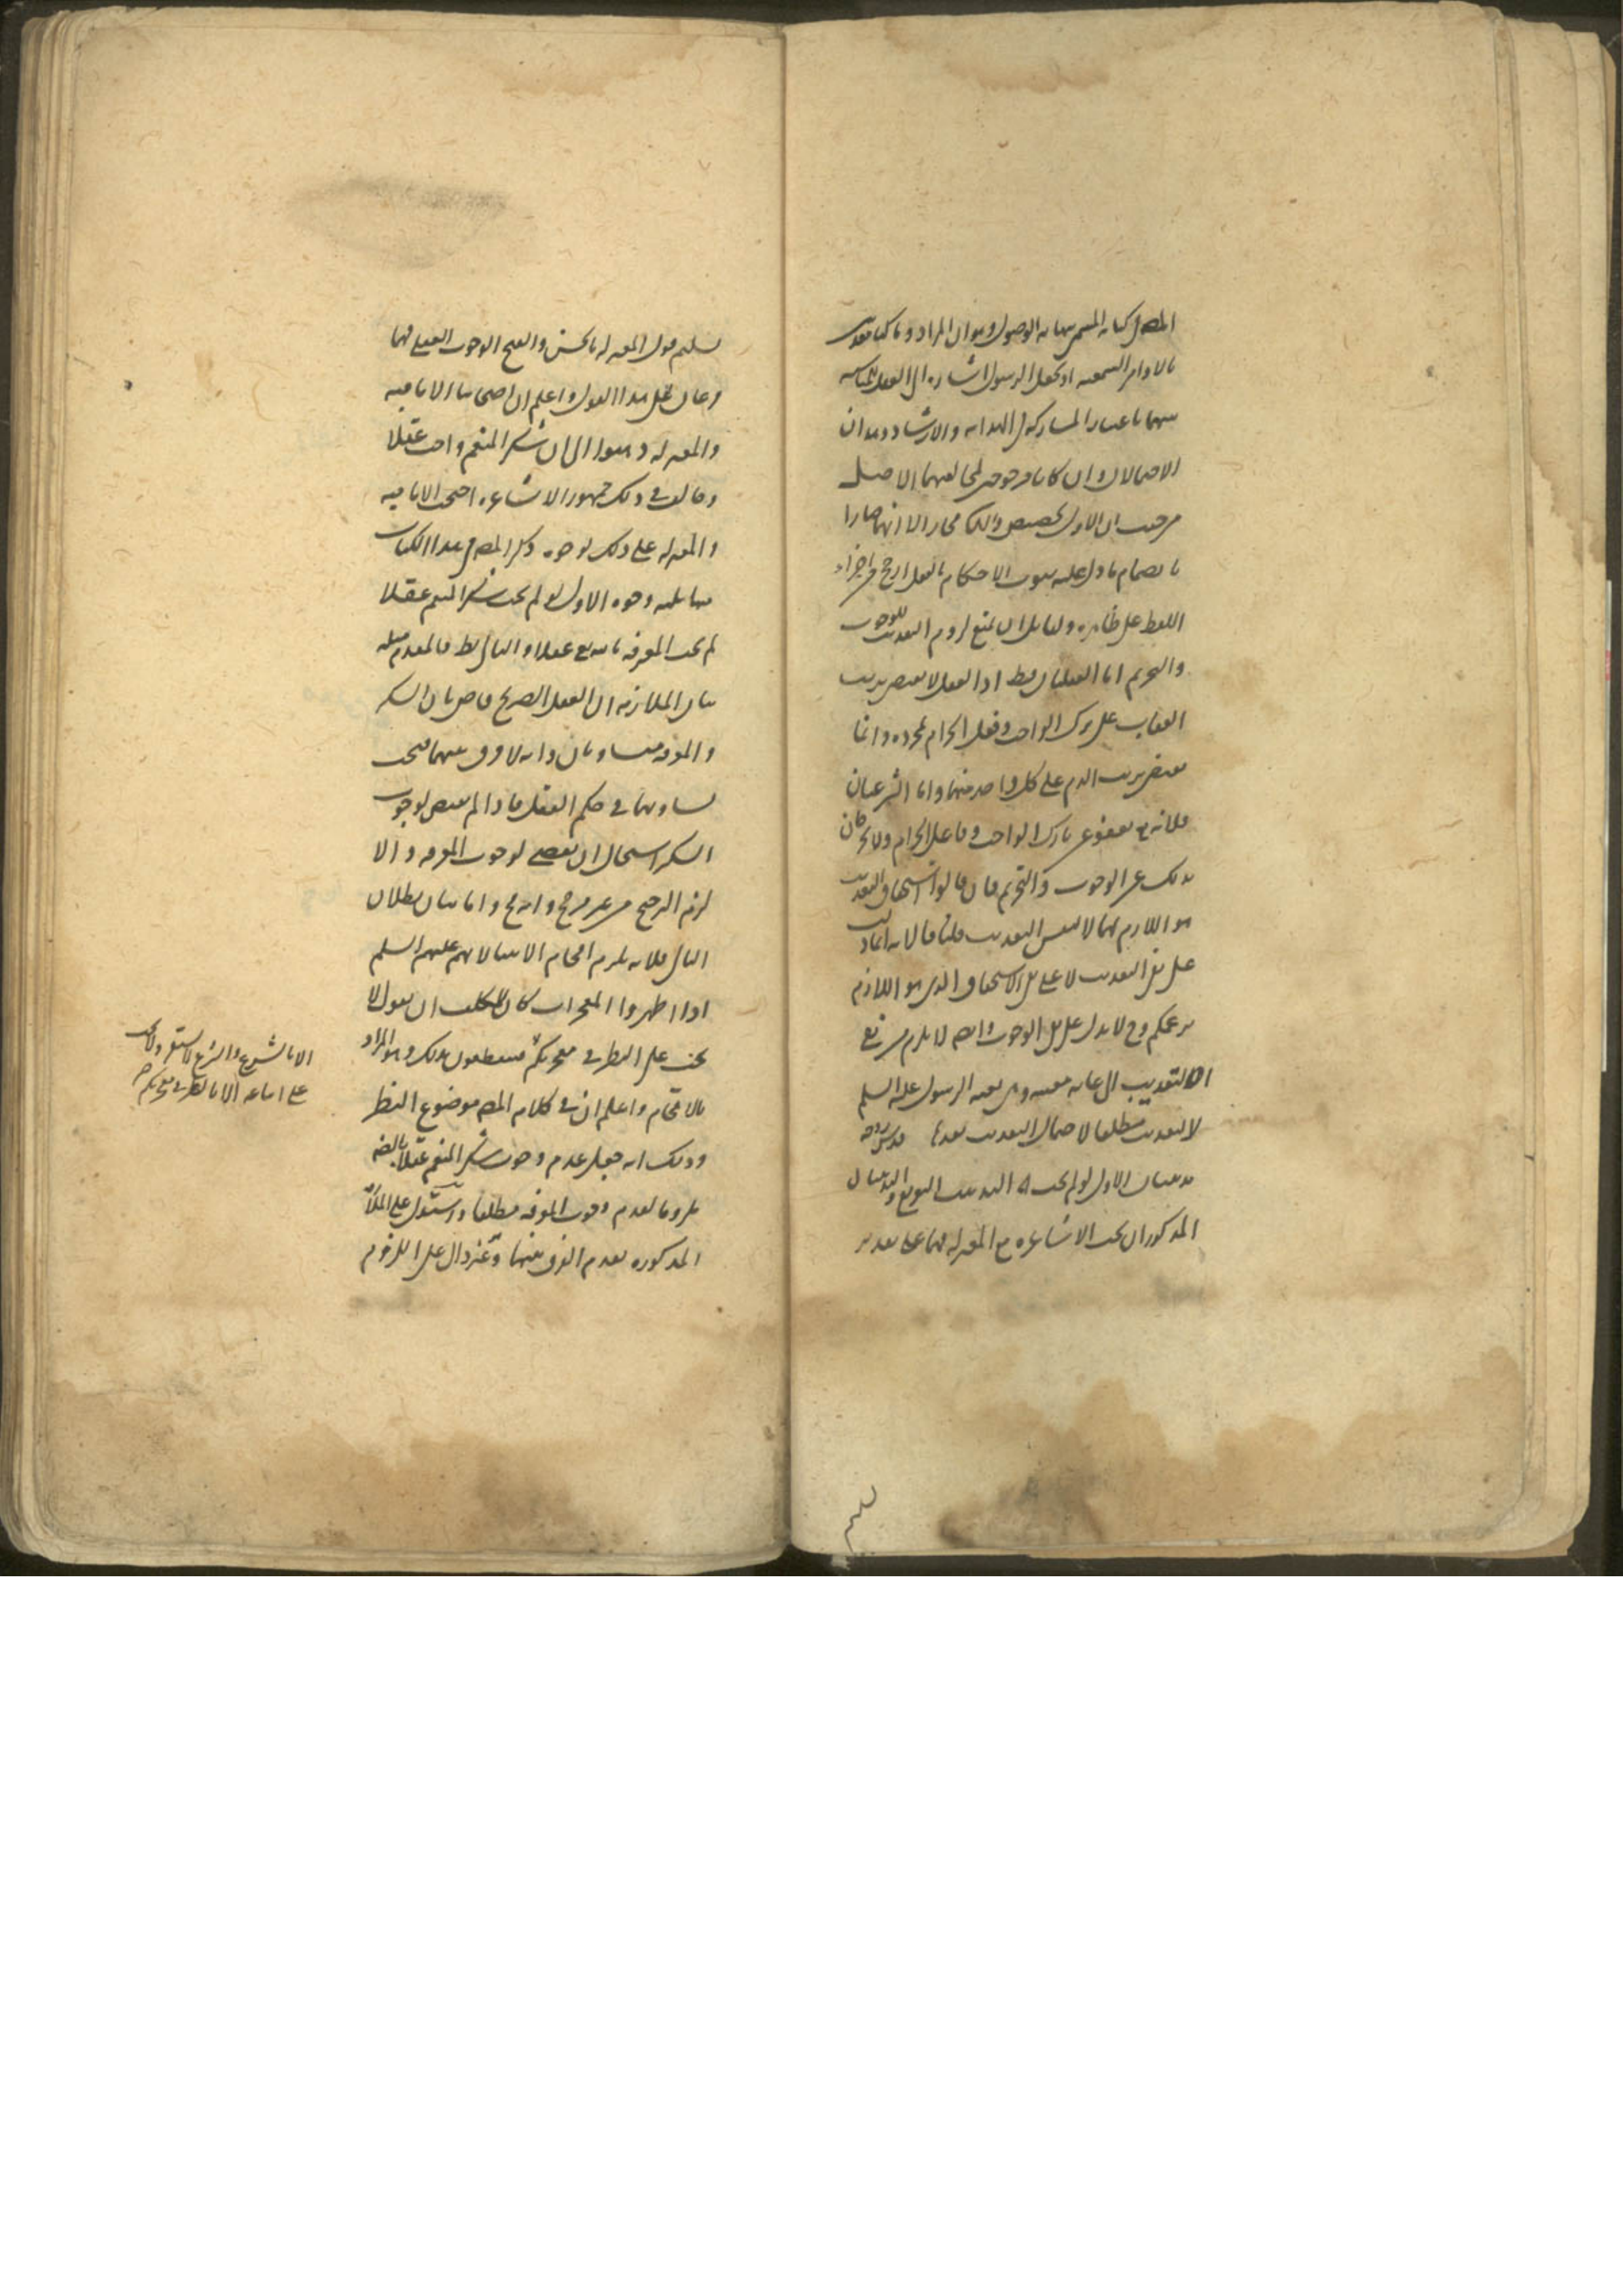 المص في كتابه المسمى بنهاية الوصول وهو ان المراد وما كنا معذبين
بالاوامر السمعية او بجعل الرسول اشارة الى العقل للمناسبة
بينهما باعتبار المشاركة في الهداية والارشاد وهذان
الاحتمالان وان كانا مرجوحين لمخالفتهما الاصل
من حيث ان الاول تخصيص والثاني مجاز الا انهما صارا
بانضمام ما دل عليه ثبوت الاحكام بالعقل ارجح من اجراء
اللفظ على ظاهره ولقائل ان يمنع لزوم التعذيب للوجوب
والتحريم اما العقليان فظ اذ العقل لا يقتضي ترتيب
العقاب على ترك الواجب وفعل الحرام بمجرده وانما
يقتضي ترتيب الذم على كل واحد منهما واما الشرعيان
فلانه تع يعفو عن تارك الواجب وفاعل الحرام ولا يخرجان
بذلك عن الوجوب والتحريم فان قالوا استحقاق التعذيب
هو اللازم لهما لا نفس التعذيب قلنا فالاية انما دلت
على نفي التعذيب لا على نفي الاستحقاق الذي هو اللازم
بزعمكم وح لا يدل على نفي الوجوب وايضا لا يلزم من نفي
التعذيب الى غاية معينة وهي بعثة الرسول عليه السلم
لا التعذيب مطلقا لاحتمال التعذيب بعدها قدس روحه
تذنيبان الاول لو لم يجب اه التذنيب التوبيع والتذنيبان
المذكوران بحث الاشاعرة مع المعتزلة فيهما على تقدير
تسليم
تسليم قول المعتزلة بالحسن والقبح الوجوب العقلي فيهما
وعلى هذا القول واعلم ان اصحابنا الامامية
والمعتزلة ذهبوا الى ان شكر المنعم واجب عقلا
وخالف في ذلك جمهور الاشاعرة احتجت الامامية
والمعتزلة على ذلك بوجوه ذكر المص في هذا الكتاب
منها ثلثة وجوه الاول لو لم يجب شكر المنعم عقلا
لم يجب المعرفة بالله تع عقلا والتالي بط فالمقدم مثله
بيان الملازمة ان العقل الصريح قاض بان الشكر
والمعرفة متساويان وانه لا فرق بينهما فيجب
تساويهما في حكم العقل فاذا لم يقتض لوجوب
الشكر استحال ان يقضي لوجوب المعرفة والا
لزم الترجيح من غير مرجح وانه مح واما بيان بطلان
التالي فلانه يلزم افحام الانبياء لانهم عليهم السلم
اذا اظهروا المعجزات كان للمكلف ان يقول لا
يجب علي النظر في معجزتكم فينقطعون بذلك وهو المراد
بالافحام واعلم ان في كلام المص موضوع النظر
وذلك انه جعل عدم وجوب شكر المنعم عقلا بالضرورة
ملزوما لعدم وجوب المعرفة مطلقا واستدل على الملازمة
المذكورة بعدم الفرق بينهما وعنده دال على اللزوم
الا بالشرع والشرع لا يستقر ولا يجب
على اتباعه الا بالنظر في معجزتكم صح